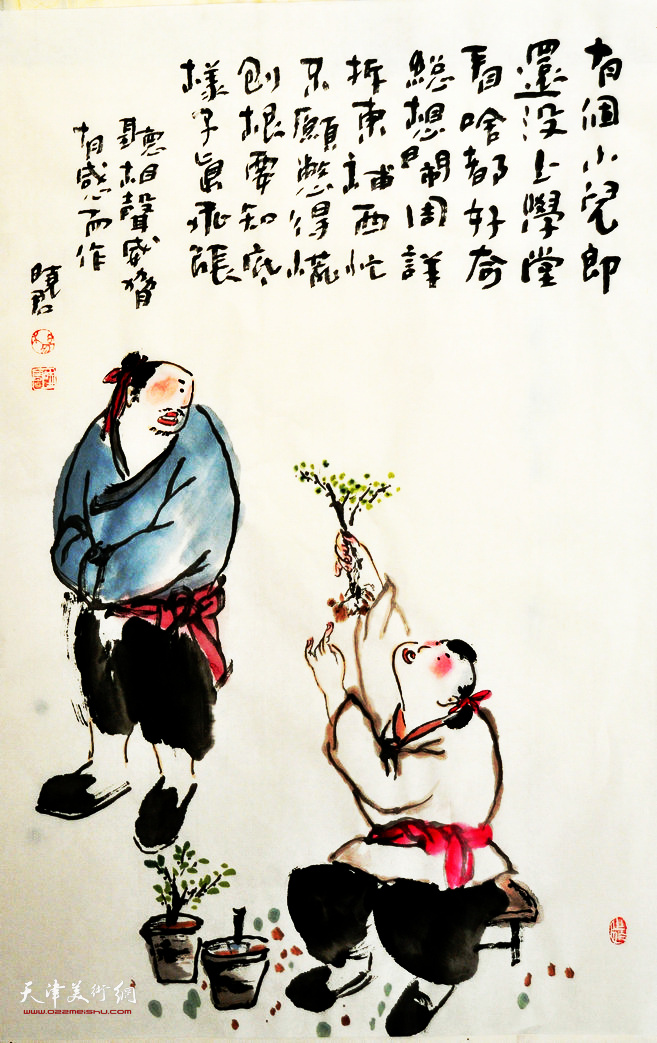 有個小兒郎
還没上學堂
看啥都好奇
總想開周詳
拆東補西忙
不願憋得慌
刨根要知底
樣子真乖張
聽相聲威脅
有感而作
曉君
天津美術網
www.022meishu.com